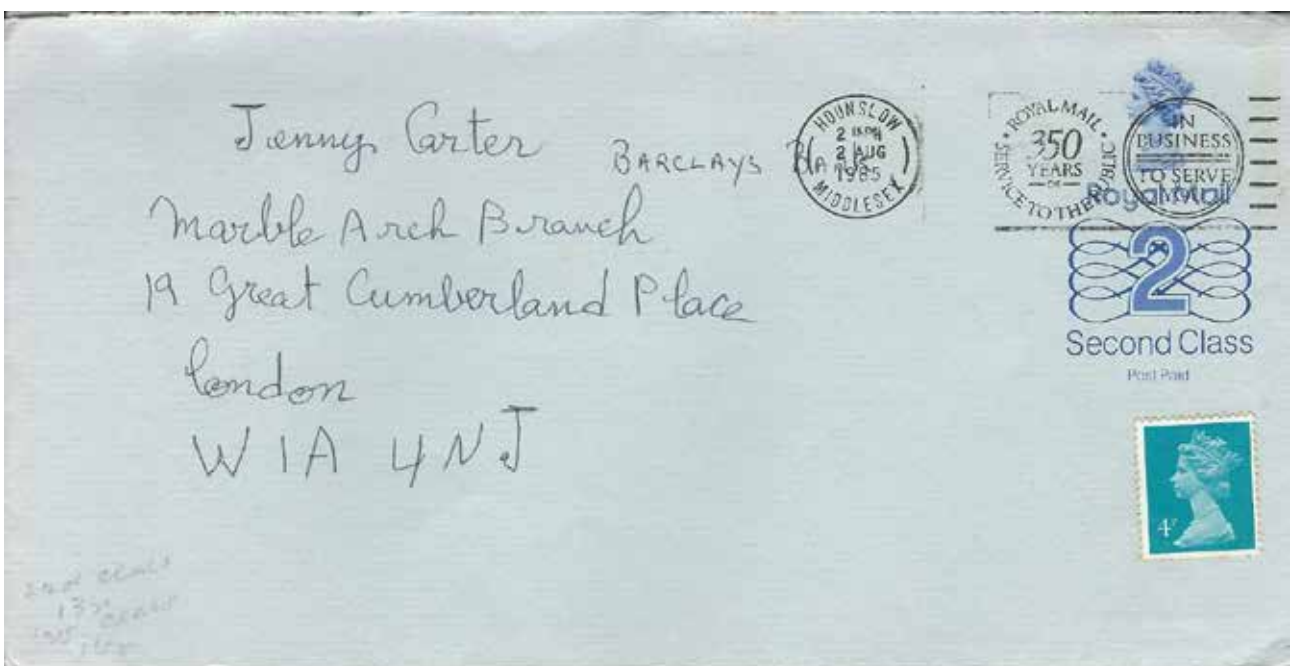 Jenny Carter
BARCLAYS BANK
Marble Arch Branch
19 Great Cumberland Place
London
W1A 4NJ
HOUNSLOW
2 AUG
1985
MIDDLESEX
ROYAL MAIL
350
YEARS
OF
SERVICE TO THE PUBLIC
IN
BUSINESS
TO SERVE
YOU
Royal Mail
2
Second Class
Post Paid
4P
2nd class